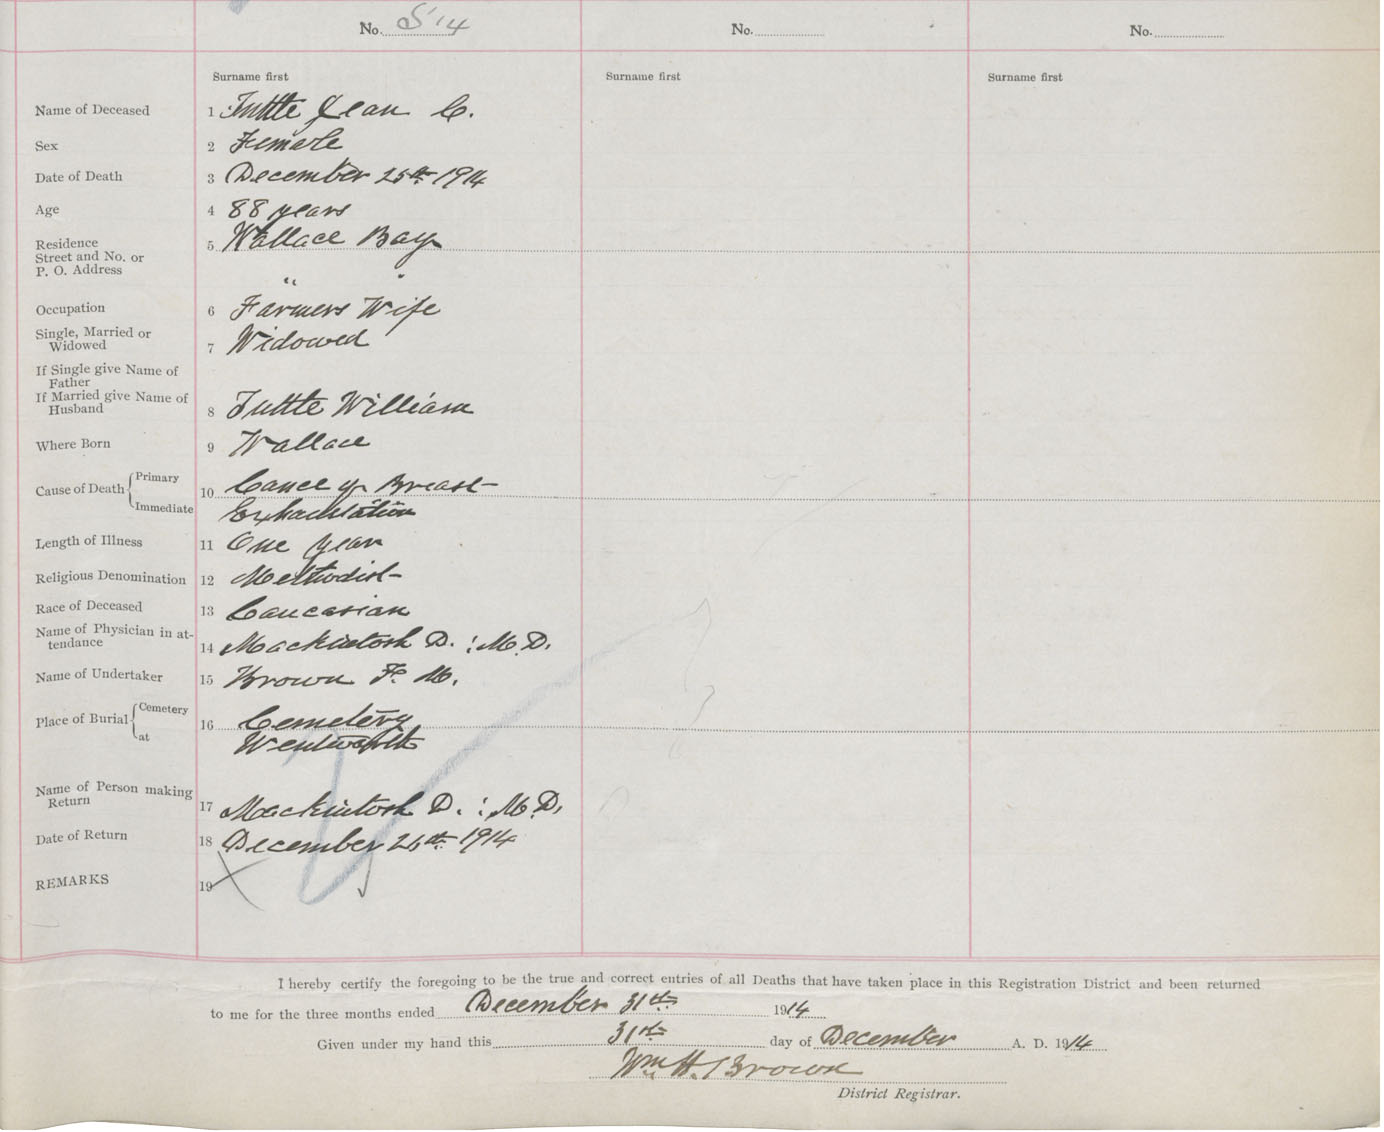 No. 514 No. No.
Surname first Surname first Surname first
Name of Deceased 1 Tuttle Jean C.
Sex 2 Female
Date of Death 3 December 25th 1914
Age 4 88 years
Residence
Street and No. or 5 Wallace Bay
P. O. Address
" "
Occupation 6 Farmers Wife
Single, Married or
Widowed 7 Widowed
If Single give Name of
Father
If Married give Name of
Husband 8 Tuttle William
Where Born 9 Wallace
Cause of Death { Primary 10 Cance of Breast
Immediate Exhaustation
Length of Illness 11 One year
Religious Denomination 12 Methodist
Race of Deceased 13 Caucasian
Name of Physician in at-
tendance 14 Mackintosh D. : M.D.
Name of Undertaker 15 Brown F. M.
Place of Burial { Cemetery 16 Cemetery
at Wentworth
Name of Person making
Return 17 Mackintosh D. : M.D.
Date of Return 18 December 26th 1914
REMARKS 19
I hereby certify the foregoing to be the true and correct entries of all Deaths that have taken place in this Registration District and been returned
to me for the three months ended December 31st 1914
Given under my hand this 31st day of December A. D. 1914
Wm. H. Brown
District Registrar.